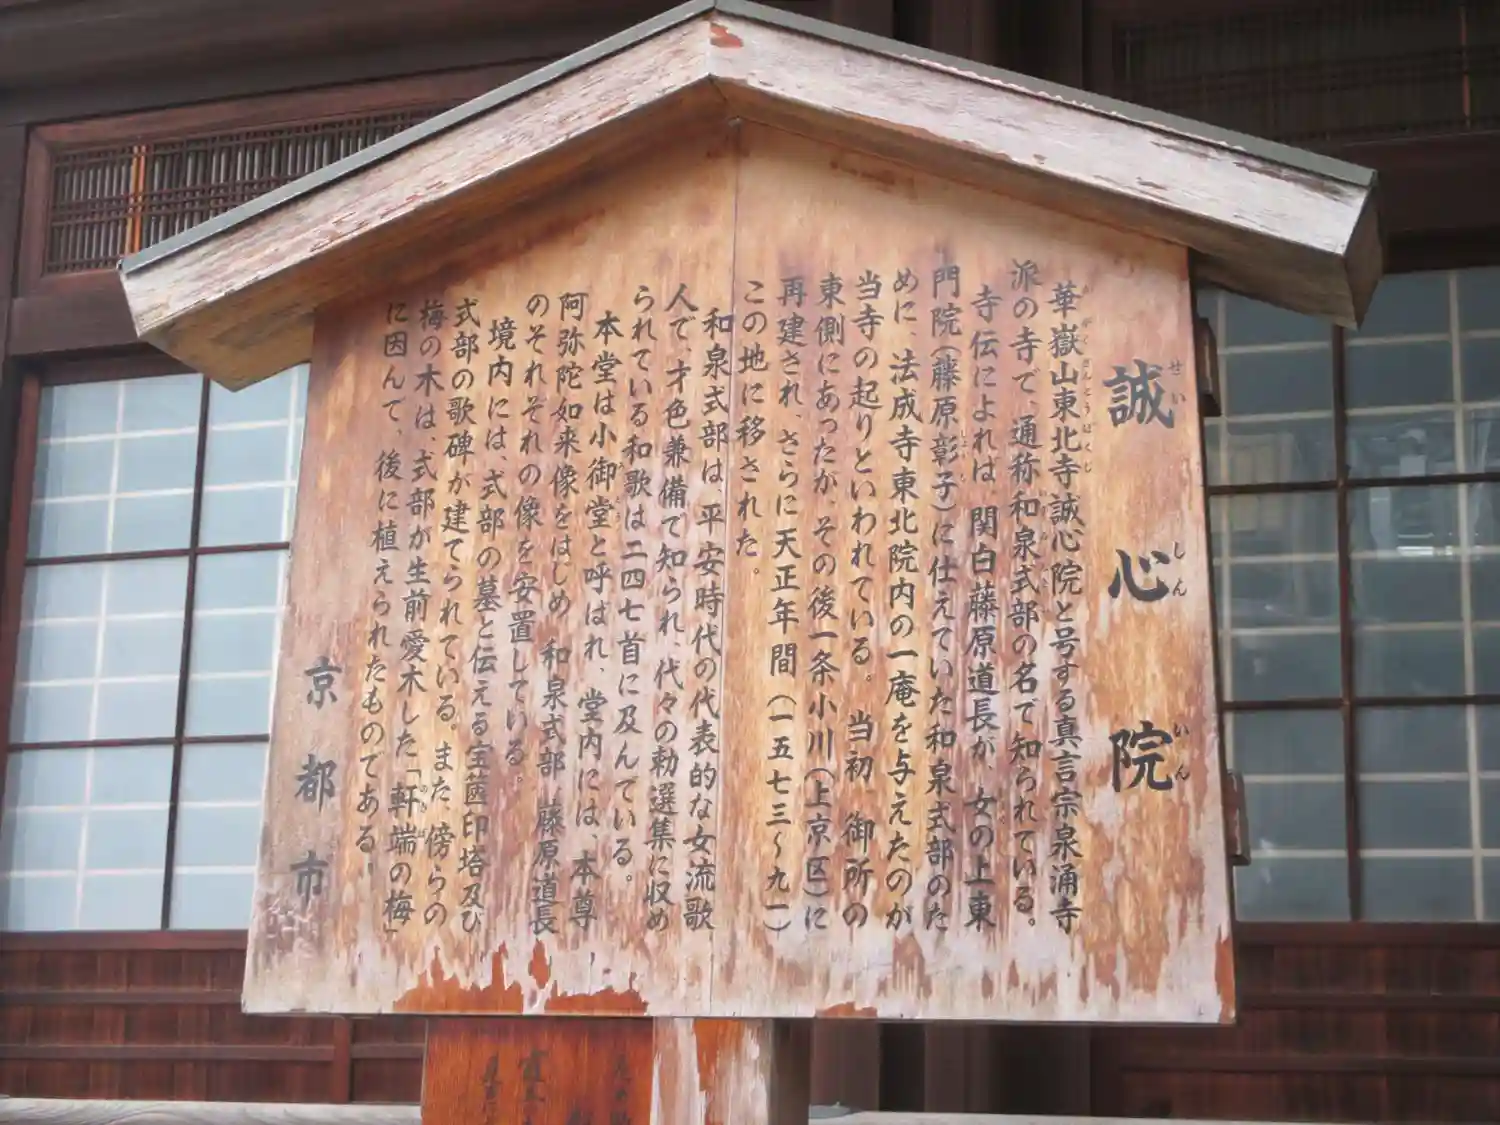 誠心院
せいしんいん
華嶽山東北寺誠心院と号する真言宗泉涌寺
かがくさんとうぼくじ
派の寺で、通称和泉式部の名で知られている。
寺伝によれば、関白藤原道長が、女の上東
門院(藤原彰子)に仕えていた和泉式部のた
めに、法成寺東北院内の一庵を与えたのが
当寺の起りといわれている。当初、御所の
東側にあったが、その後一条小川(上京区)に
再建され、さらに天正年間(一五七三〜九一)
この地に移された。
和泉式部は、平安時代の代表的な女流歌
人で、才色兼備で知られ、代々の勅選集に収め
られている和歌は二四七首に及んでいる。
本堂は小御堂と呼ばれ、堂内には、本尊
阿弥陀如来像をはじめ、和泉式部、藤原道長
のそれぞれの像を安置している。
境内には、式部の墓と伝える宝篋印塔及び
式部の歌碑が建てられている。また、傍らの
梅の木は、式部が生前愛木した「軒端の梅」
のきば
に因んで、後に植えられたものである。
京都市